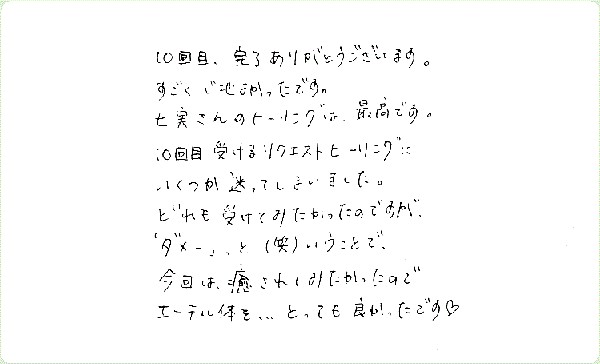 10回目、完了ありがとうございます。
すごく心地よかったです。
七実さんのヒーリングは、最高です。
10回目受けるリクエストヒーリングに
いくつか迷ってしまいました。
どれも受けてみたかったのですが、
「ダメー」、と(笑)いうことで、
今回は、癒されてみたかったので
エーテル体を…とっても良かったです♡